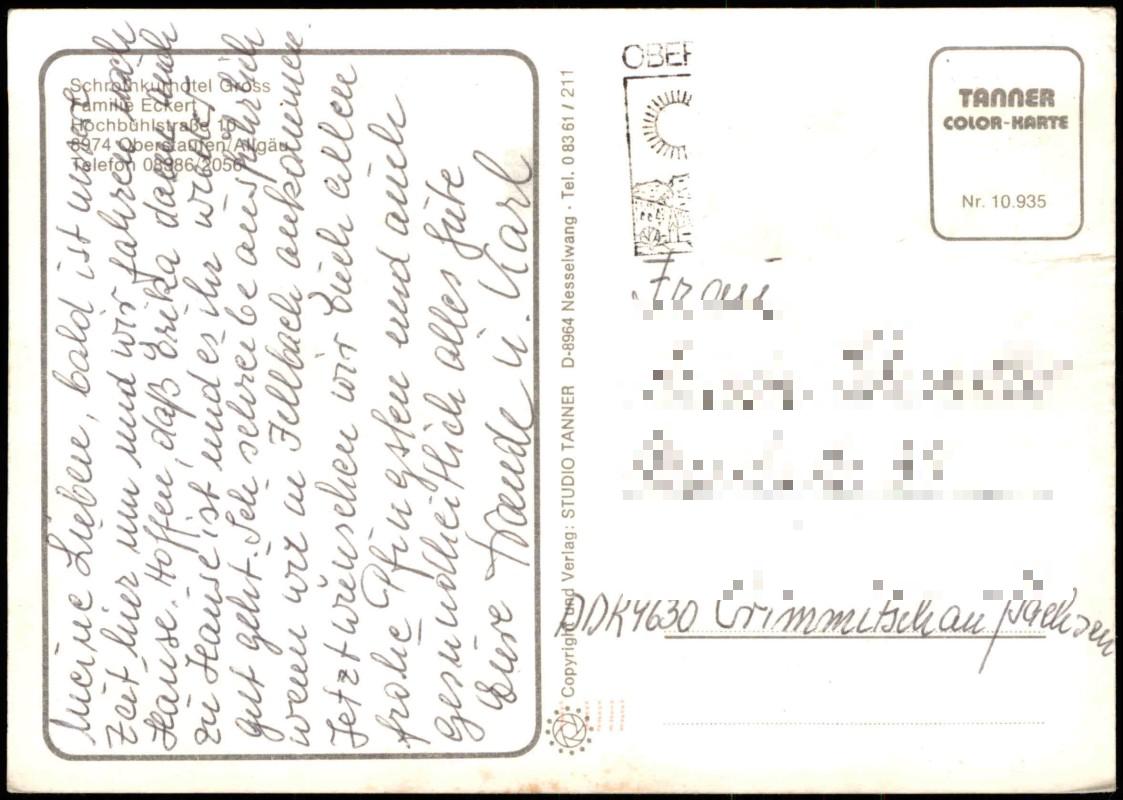 Schrothkurhotel Gross
Familie Eckert
Hochbühlstraße 10
8974 Oberstaufen/Allgäu
Telefon 08386/2056
Meine Lieben, bald ist unsere
Zeit hier um und wir fahren nach
Hause. Hoffen, daß Erika dann auch
zu Hause ist und es ihr wieder
gut geht. Ich schreibe ausführlich
wenn wir in Fellbach ankommen.
Jetzt wünschen wir Euch allen
frohe Pfingsten und auch
gesundheitlich alles Gute
Eure Traude u. Karl
Copyright und Verlag: STUDIO TANNER D-8964 Nesselwang · Tel. 0 83 61 / 211
OBER
TANNER
COLOR-KARTE
Nr. 10.935
Frau
DDR 4630 Crimmitschau/Sachsen